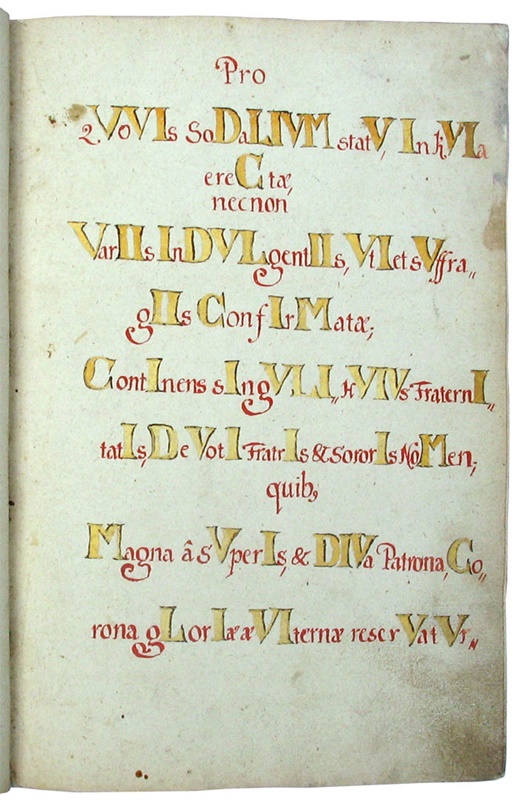 Pro
QVoVIs SoDaLIVM statV, In hVIa
ereCtæ,
necnon
VarIIs InDVLgentIIs, VtI et sVffra„
gIIs ConfIrMatæ;
ContInens sIngVLI„ HVIVs FraternI„
tatIs, DeVotI FratrIs & SororIs NoMen;
quib9
Magna â sVperIs, & DIVa Patrona, Co„
rona gLorIæ æVIternæ reserVatVr„